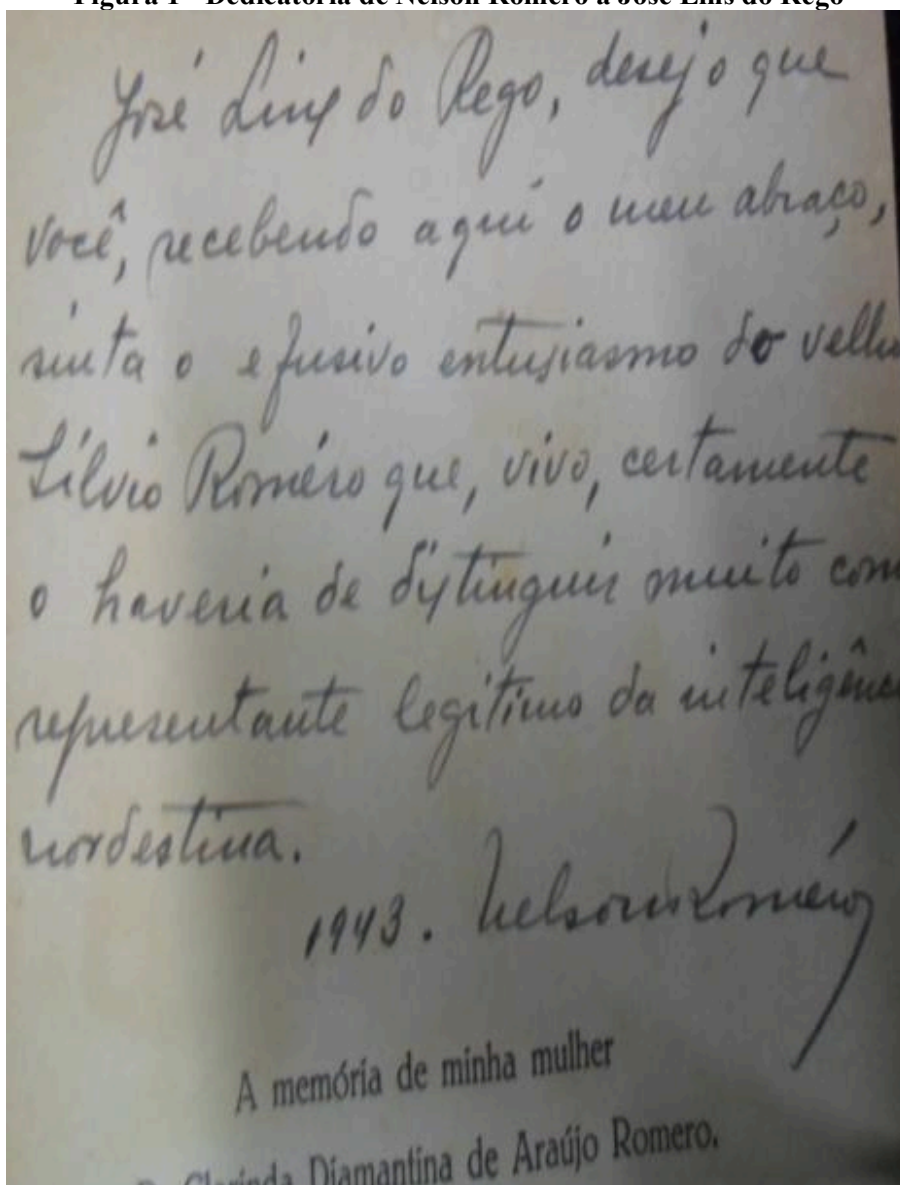 Figura 1 - Dedicatória de Nelson Romero a José Lins do Rego
José Lins do Rego, desejo que
você, recebendo aqui o meu abraço,
sinta o efusivo entusiasmo do velho
Sílvio Roméro que, vivo, certamente
o haveria de distinguir muito com
representante legítimo da inteligênc
nordestina.
1943. Nelson Roméro
A memória de minha mulher
D. Clarinda Diamantina de Araújo Romero.